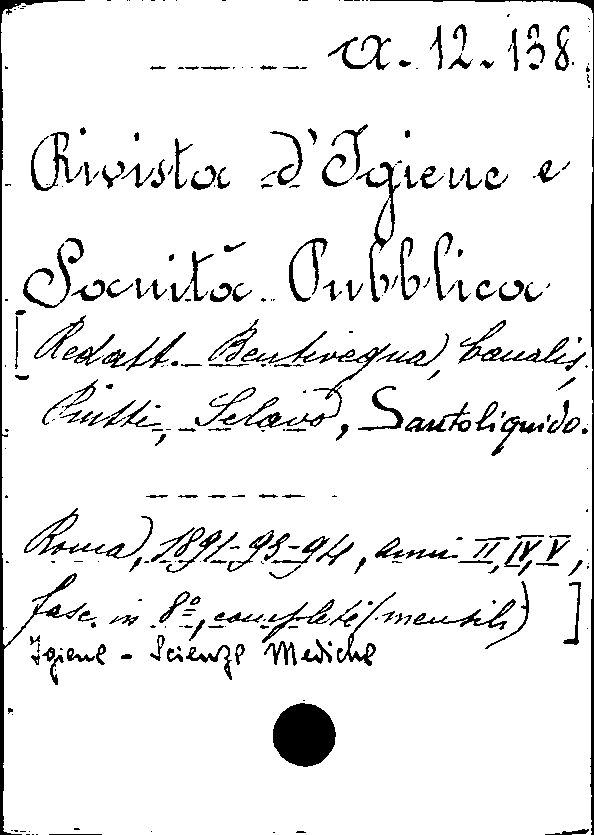 α. 12. 138
Rivista d'Igiene e
Sanità Pubblica
[Redatt. Bentivegna, Canalis,
Piutti, Sclavo, Santoliquido.
Roma, 1891-93-94, anni II, IV, V,
fasc. in 8º, completi (mensili)]
Igiene - Scienze Mediche